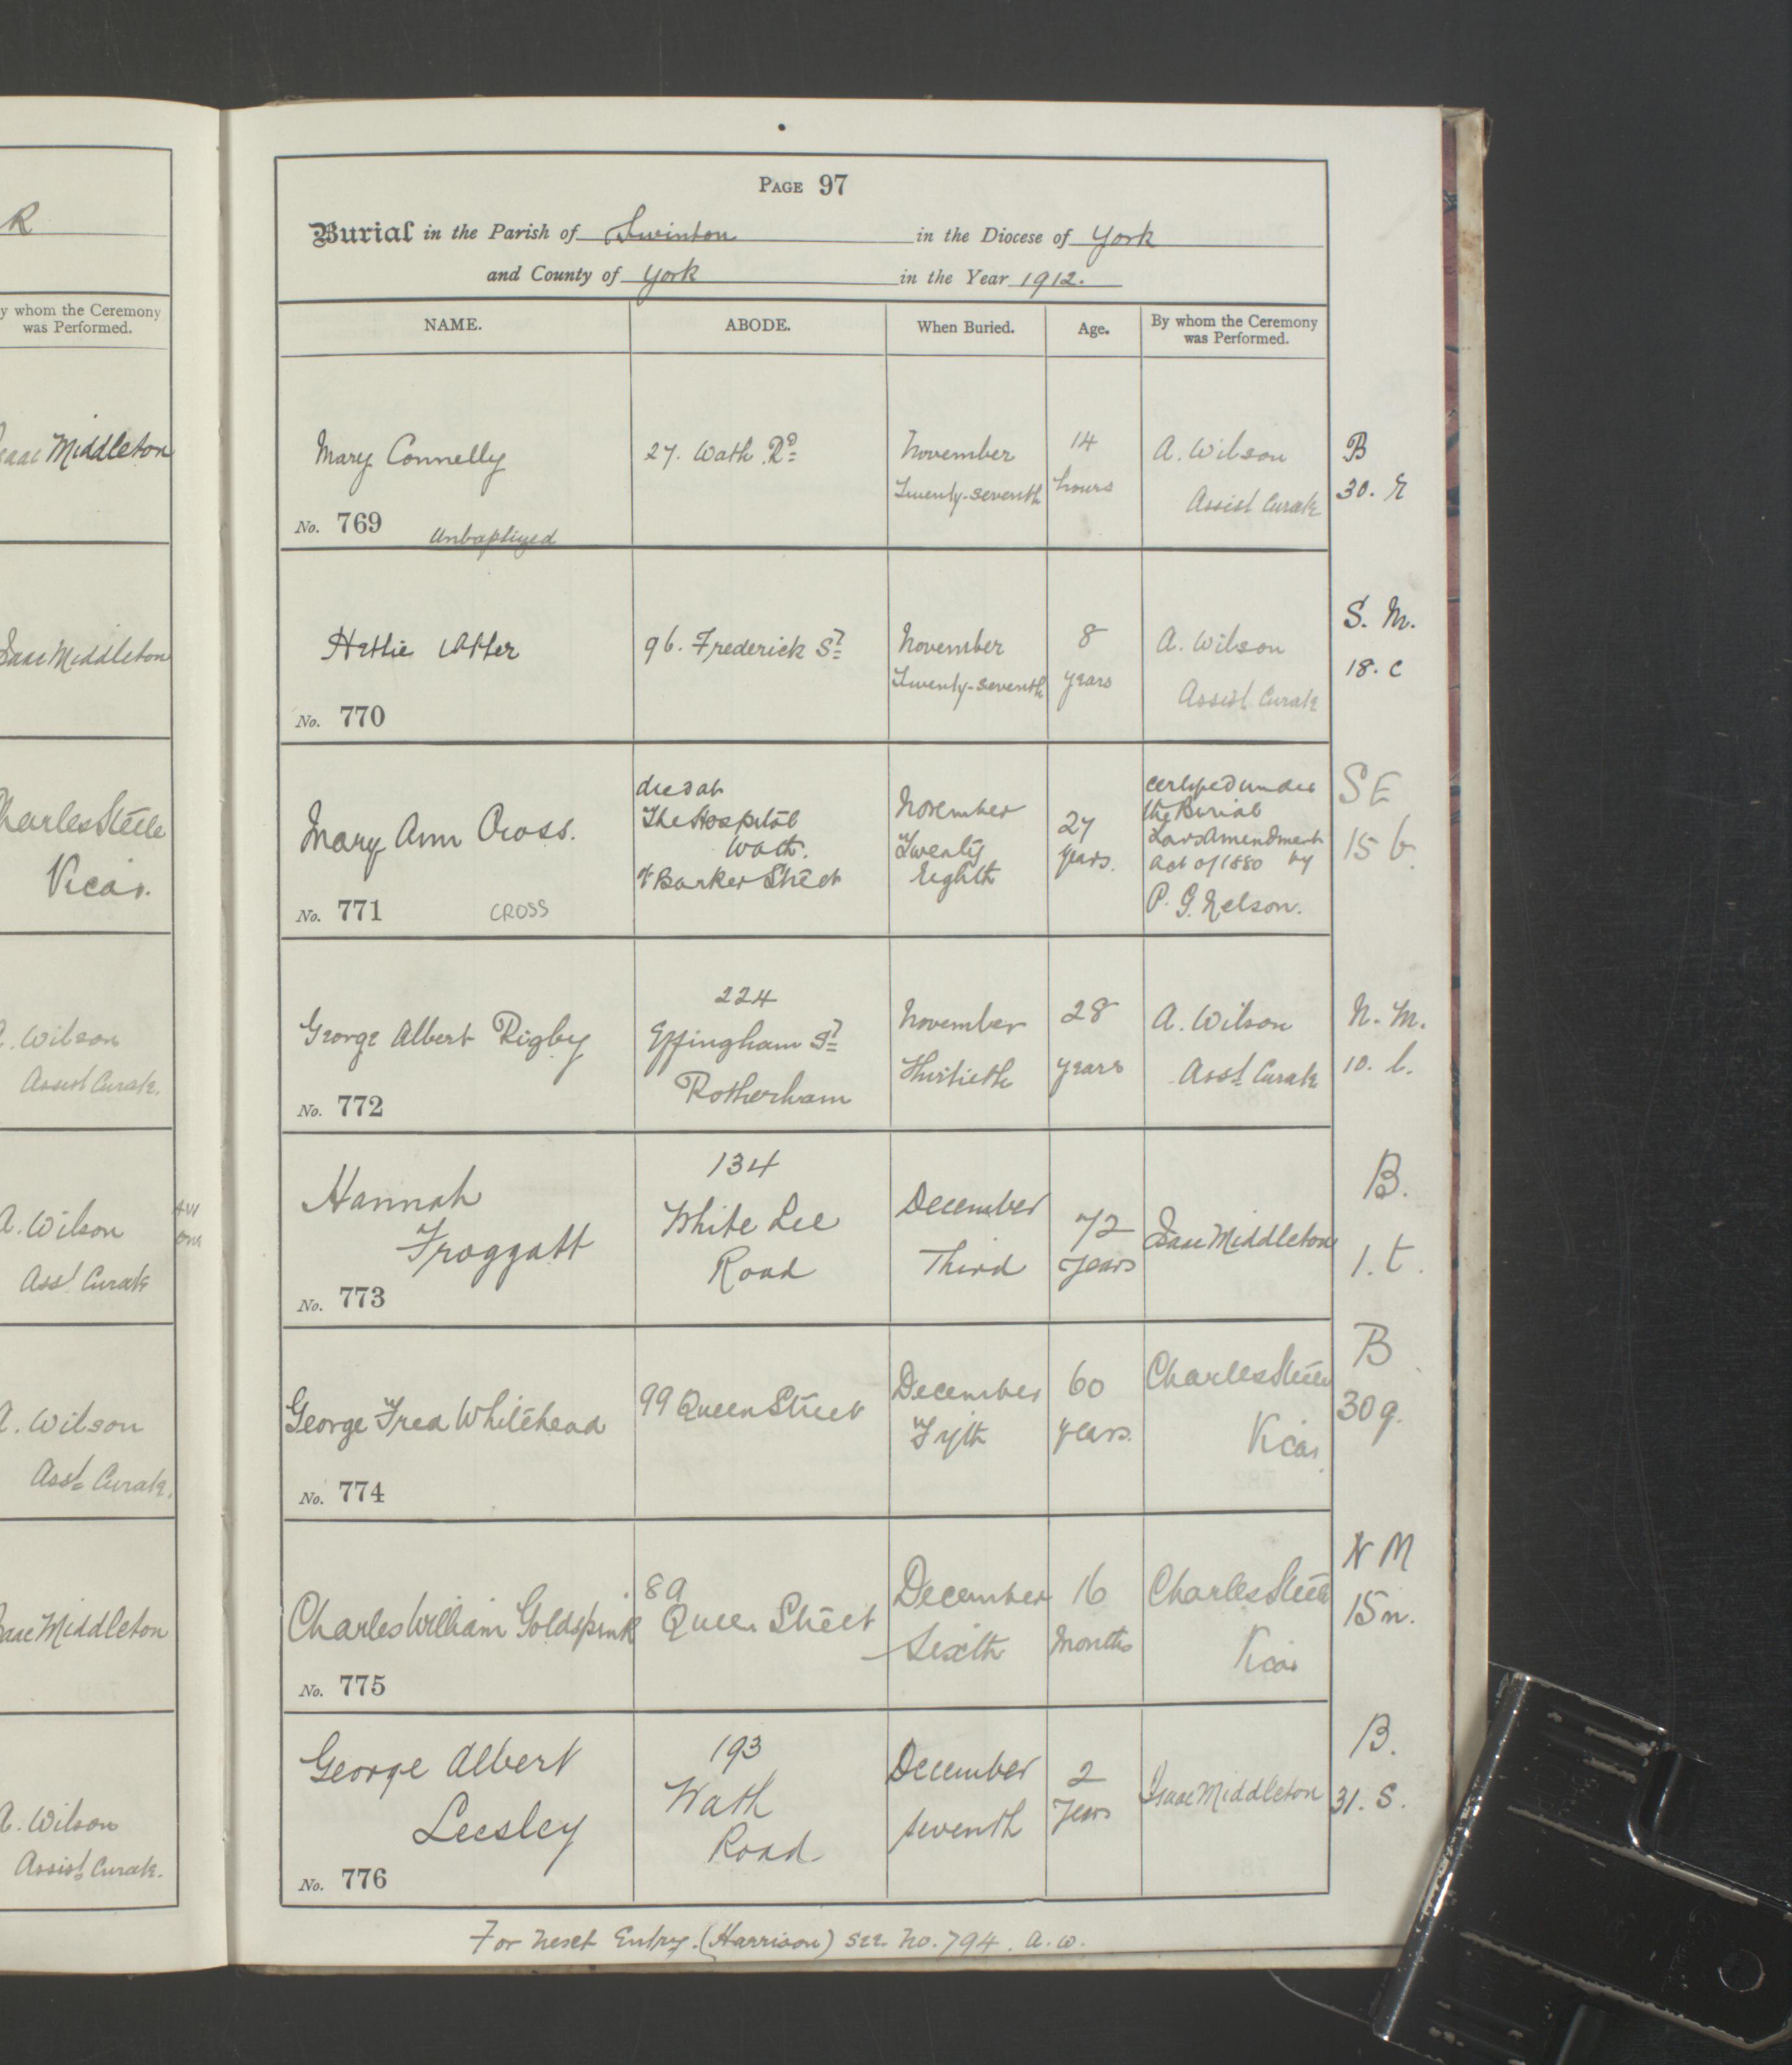 R
y whom the Ceremony
was Performed.
Isaac Middleton
Isaac Middleton
Charles Steele
Vicar.
A. Wilson
Assist Curate.
A. Wilson
Asst Curate
A. Wilson
Asst Curate.
Isaac Middleton
A. Wilson
Assist Curate.
PAGE 97
Burial in the Parish of Swinton in the Diocese of York
and County of York in the Year 1912.
NAME. ABODE. When Buried. Age. By whom the Ceremony
was Performed.
Mary Connelly 27. Wath Rd November 14 A. Wilson B
Twenty-seventh hours Assist Curate 30. r
No. 769 Unbaptized
Hettie 96. Frederick St November 8 A. Wilson S. M.
Twenty-seventh years Assist Curate 18. c
No. 770
Mary Ann Cross. died at
The Hospital
Wath.
Barker Street
November
Twenty
Eighth
27
years.
certified under
the Burial
Laws Amendment
Act of 1880 by
P. G. Nelson.
S E
15 b.
No. 771 CROSS
George Albert Rigby 224
Effingham St
Rotherham
November
Thirtieth
28
years
A. Wilson
Asst Curate
N. M.
10. l.
No. 772
Hannah
Froggatt
134
White Lee
Road
December
Third
72
years
Isaac Middleton
B.
1. t.
No. 773
George Fred Whitehead 99 Queen Street December
Fifth
60
years.
Charles Steele
Vicar
B
30 g.
No. 774
Charles William Goldspink 8a
Queen Street
December
Sixth
16
months
Charles Steele
Vicar
N M
15 n.
No. 775
George Albert
Leesley
193
Wath
Road
December
seventh
2
years
Isaac Middleton
B.
31. S.
No. 776
For next Entry. (Harrison) see No. 794. A. W.